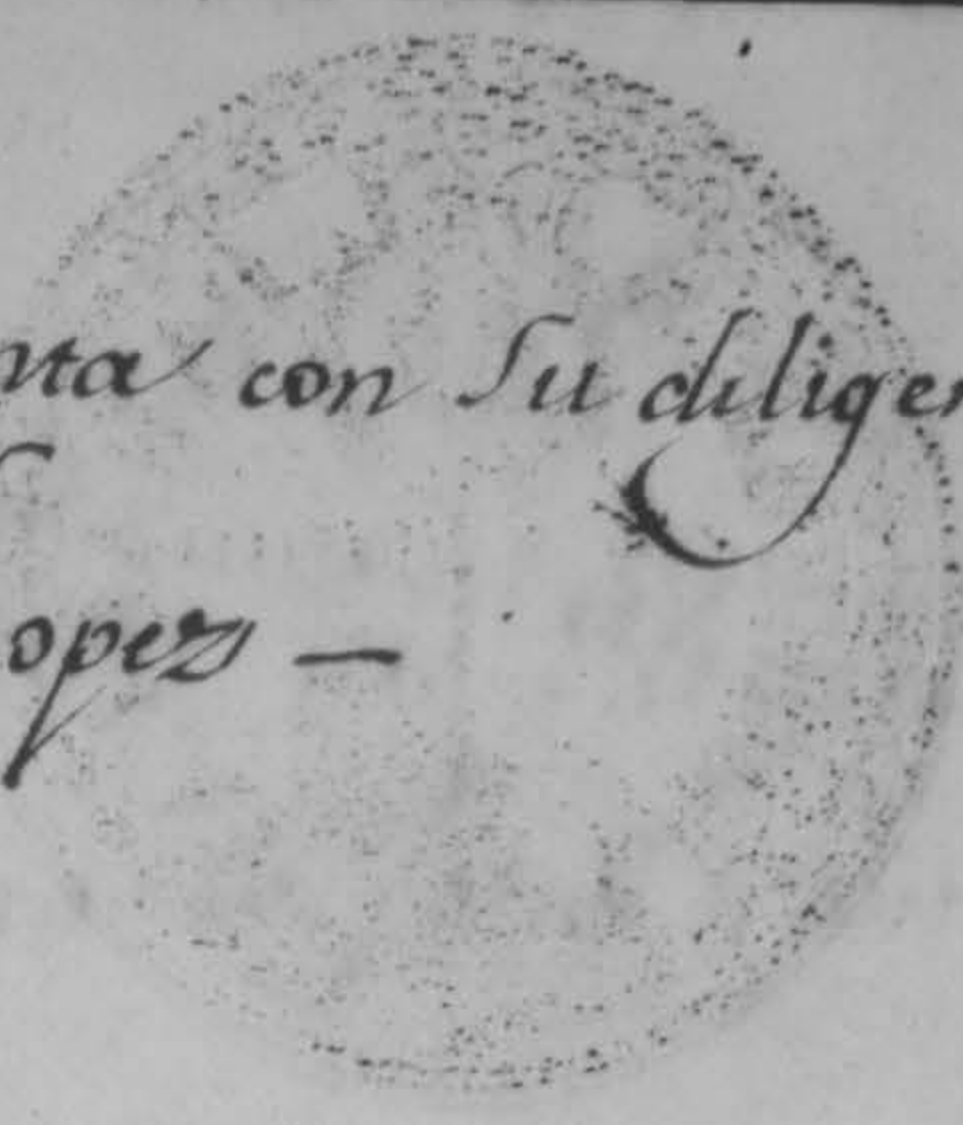 nta con Su diligen
opez —